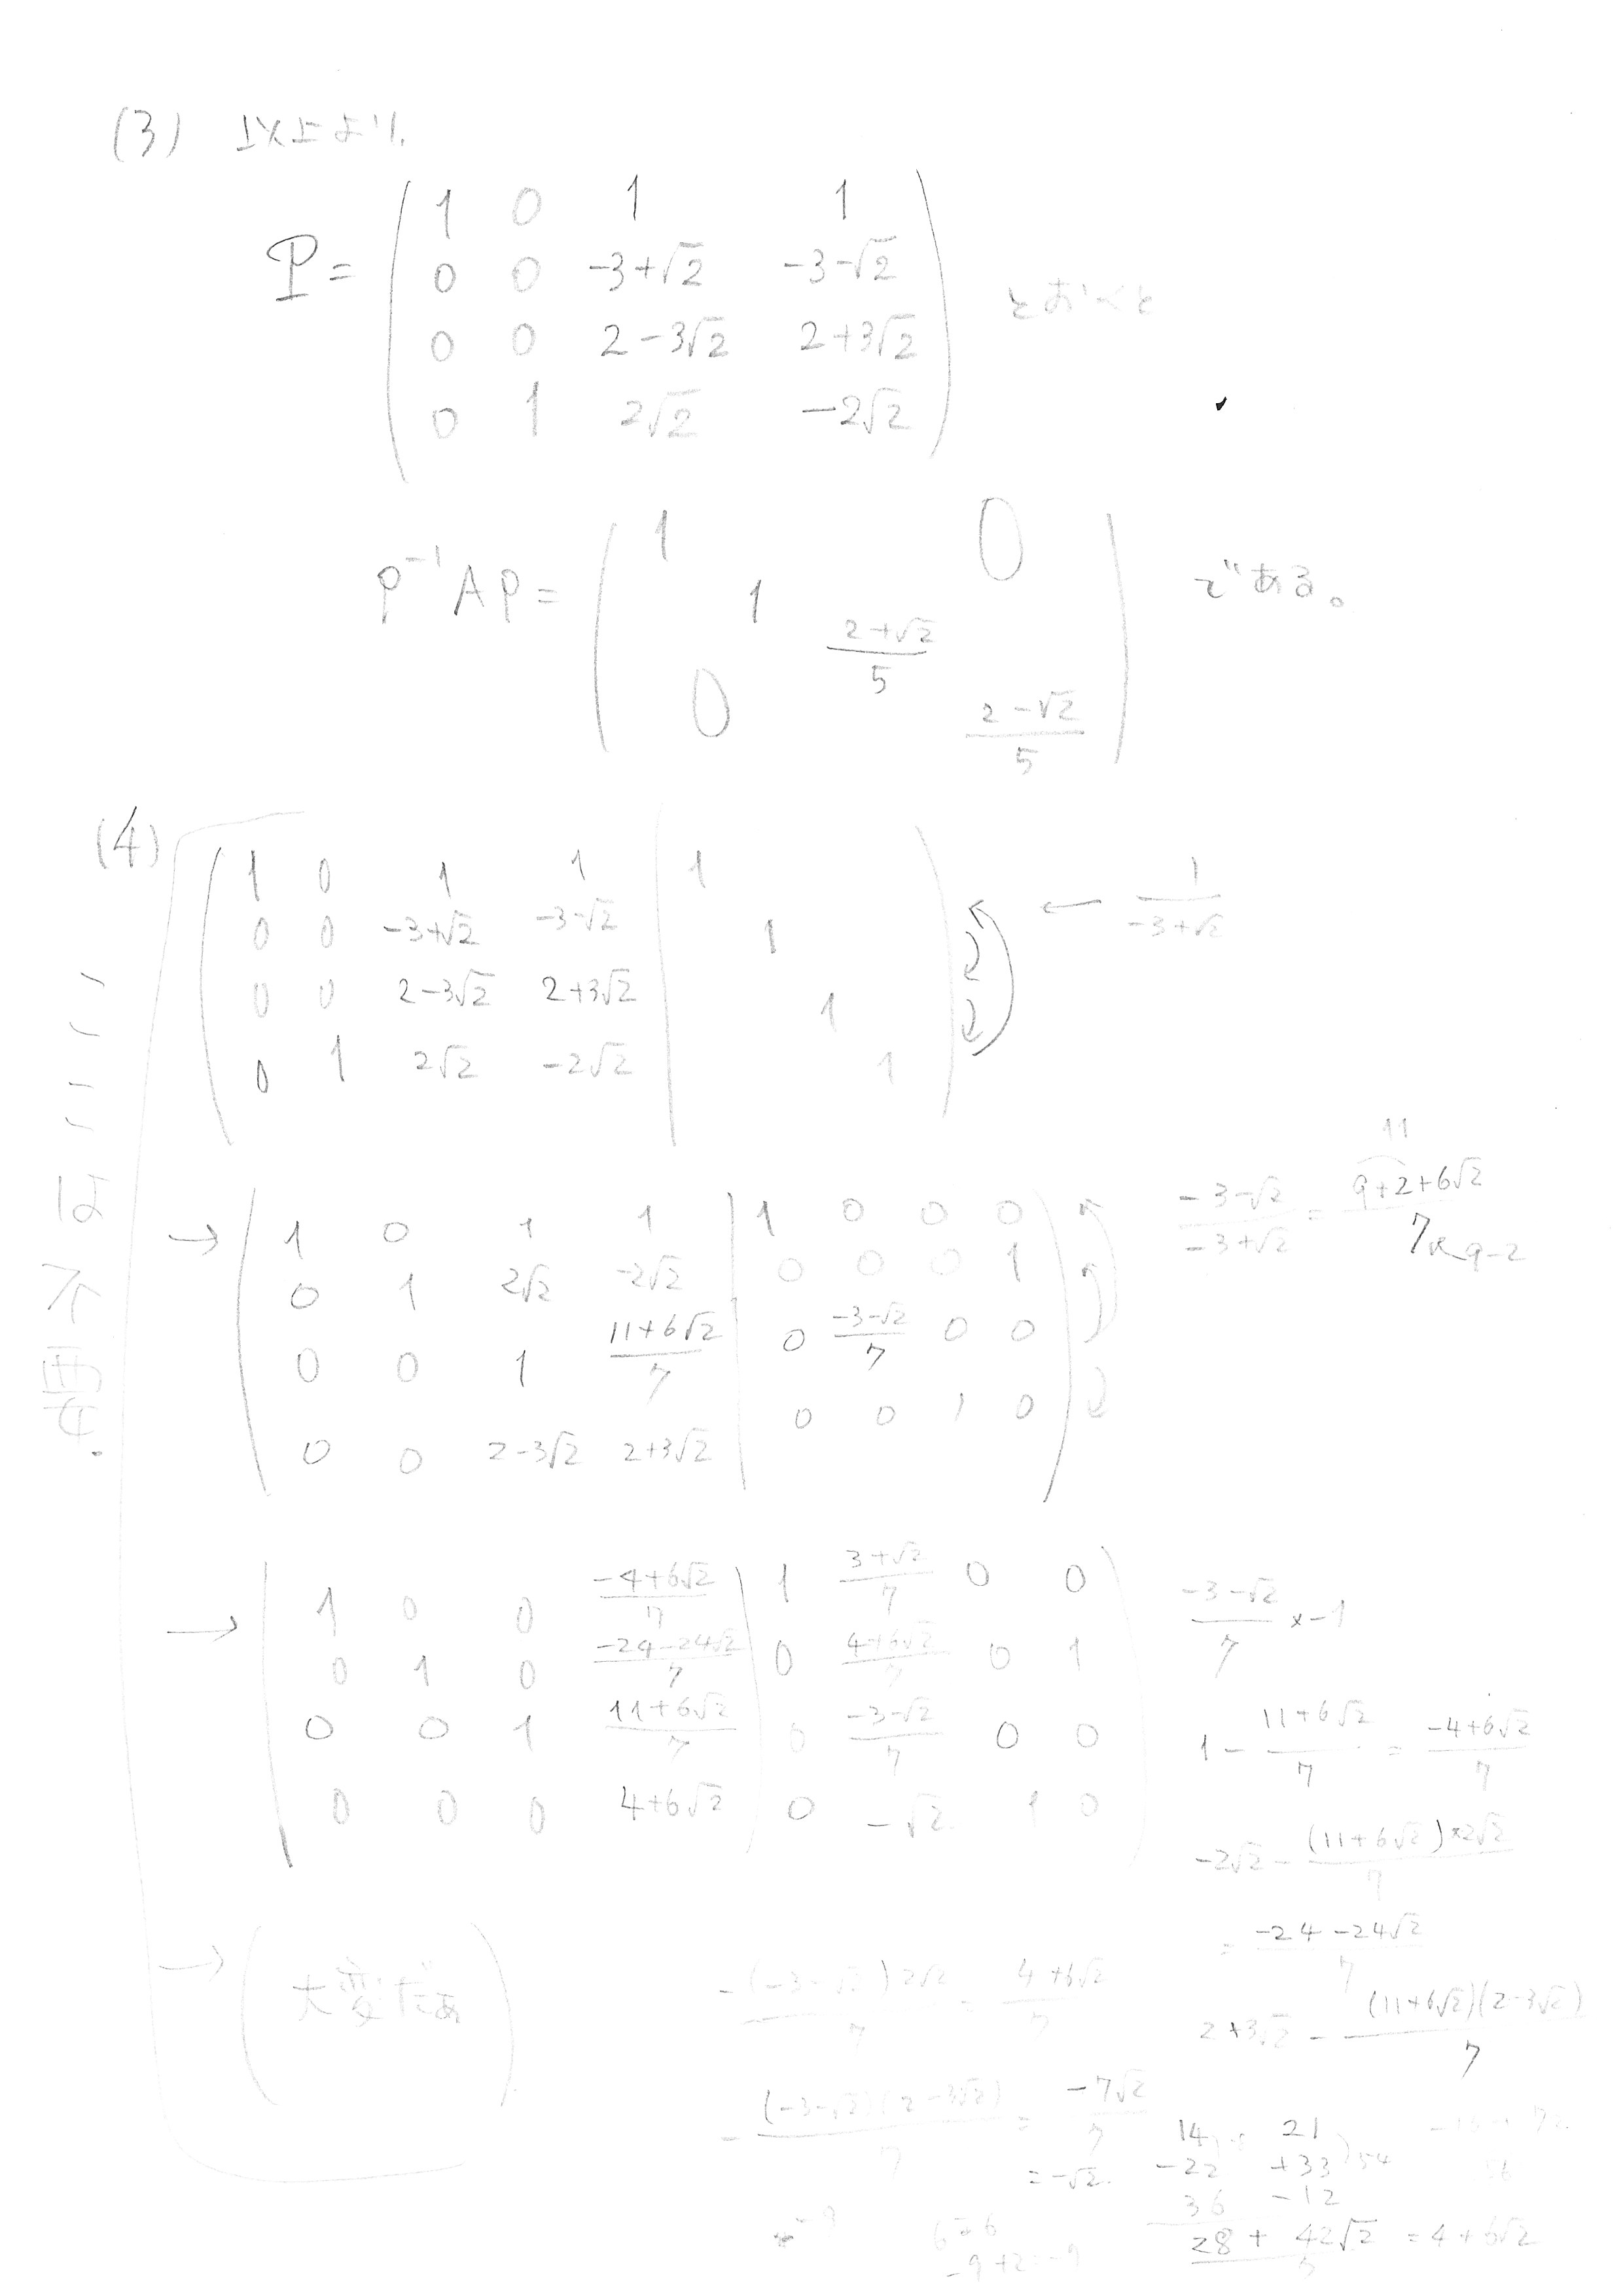 (3) 以上より、
P = ( 1 0 1 1
0 0 -3+√2 -3-√2
0 0 2-3√2 2+3√2
0 1 2√2 -2√2 ) とおくと
P⁻¹AP = ( 1 0
1
(2+√2)/5
0 (2-√2)/5 ) である。
(4)
( 1 0 1 1 | 1
0 0 -3+√2 -3-√2 | 1
0 0 2-3√2 2+3√2 | 1
0 1 2√2 -2√2 | 1 ) ← 1/(-3+√2)
→ ( 1 0 1 1 | 1 0 0 0
0 1 2√2 -2√2 | 0 0 0 1
0 0 1 (11+6√2)/7 | 0 (-3-√2)/7 0 0
0 0 2-3√2 2+3√2 | 0 0 1 0 )
(-3-√2)/(-3+√2) = (9+2+6√2)/7
11
9-2
→ ( 1 0 0 (-4+6√2)/7 | 1 (3+√2)/7 0 0
0 1 0 (-24-24√2)/7 | 0 (4+6√2)/7 0 1
0 0 1 (11+6√2)/7 | 0 (-3-√2)/7 0 0
0 0 0 4+6√2 | 0 -√2 1 0 )
(-3-√2)/7 × -1
1 - (11+6√2)/7 = (-4+6√2)/7
-2√2 - (11+6√2)×2√2/7
= (-24-24√2)/7
→ ( 大変だぁ )
-(-3-√2)2√2/7 = (4+6√2)/7
2+3√2 - (11+6√2)(2-3√2)/7
-(-3-√2)(2-3√2)/7 = -7√2/7
= -√2
14 21
-22 +33 54
36 -12
28 + 42√2 = 4+6√2